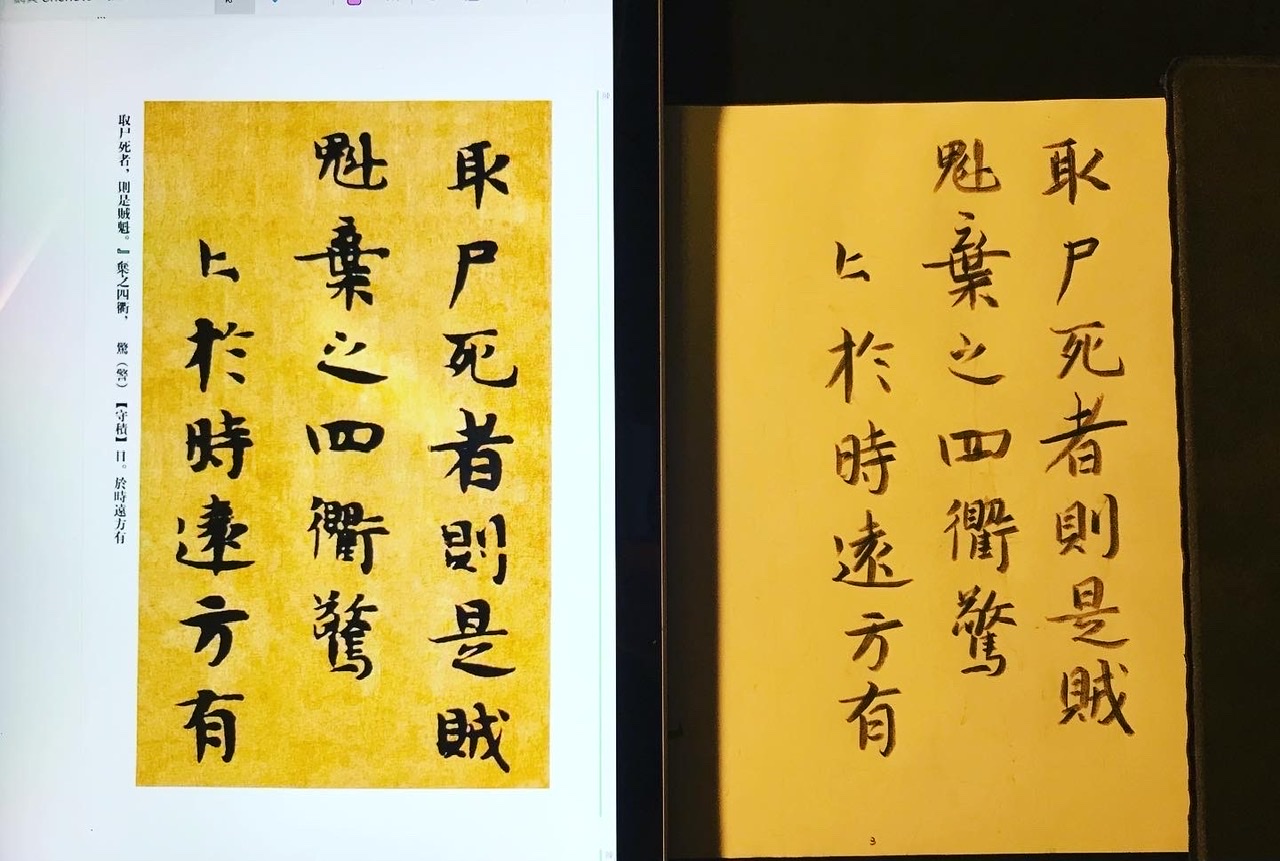 取尸死者則是賊
魁棄之四衢驚
於時遠方有
取尸死者，則是賊魁。』棄之四衢，　驚（警）【守積】日。於時遠方有
取尸死者則是賊
魁棄之四衢驚
於時遠方有
3